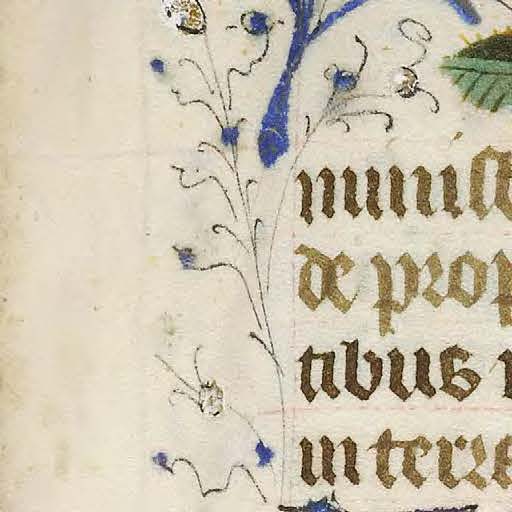 minist
de prop
tibus
in terre